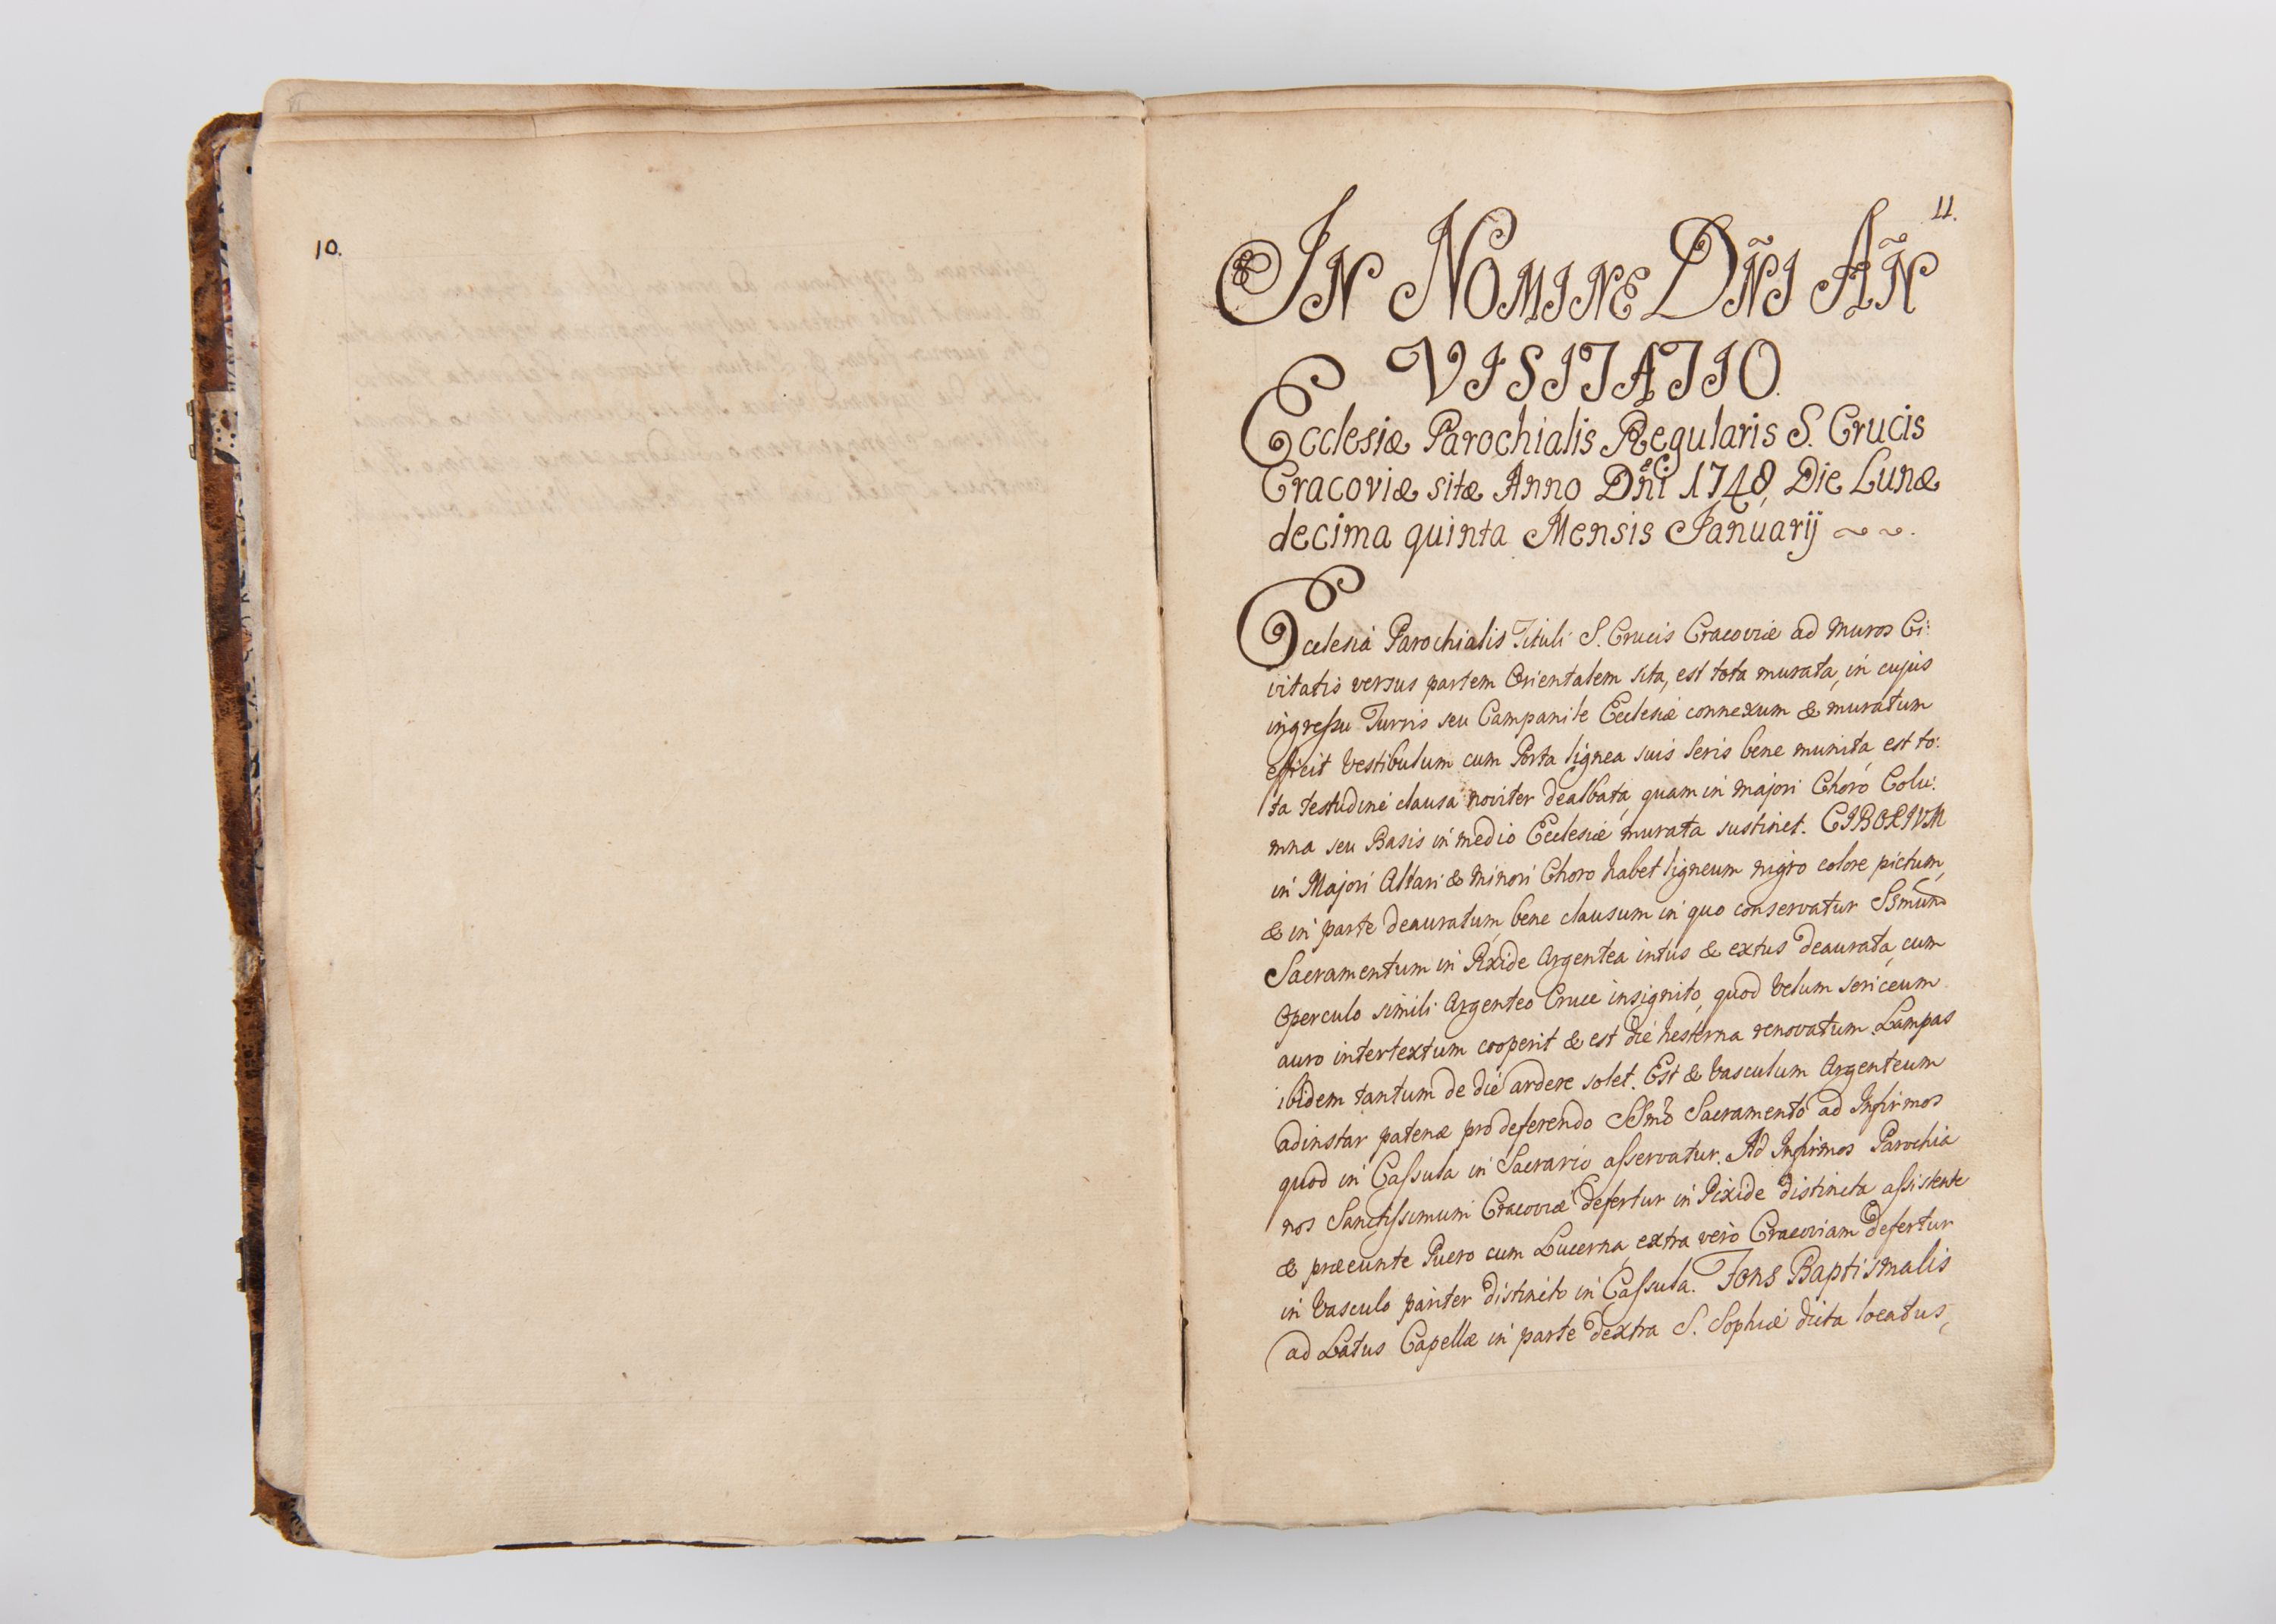 10.
11.
IN NOMINE DÑI AÑ
VISITATIO.
Ecclesiæ Parochialis Regularis S. Crucis
Cracoviæ sitæ Anno Dñi 1748, Die Lunæ
decima quinta Mensis Januarij ~ ~.
Ecclesia Parochialis Tituli S. Crucis Cracoviæ ad muros Ci:
vitatis versus partem Orientalem sita, est tota murata, in cujus
ingressu Turris seu Campanile Ecclesiæ connexum & muratum
efficit Vestibulum cum Porta lignea suis seris bene munita, est to:
ta testudine clausa noviter dealbata, quam in majori Choro Colu:
mna seu Basis in medio Ecclesiæ murata sustinet. CIBORIUM
in Majori Altari & minori Choro habet ligneum nigro colore pictum,
& in parte deauratum, bene clausum in quo conservatur SSmum
Sacramentum in Pixide Argentea intus & extus deaurata, cum
Operculo simili Argenteo Cruce insignito, quod Velum sericeum
auro intertextum cooperit & est die hesterna renovatum. Lampas
ibidem tantum de die ardere solet. Est & Vasculum Argenteum
adinstar patenæ pro deferendo SSmõ Sacramento ad Infirmos
quod in Cassula in Sacrario asservatur. Ad Infirmos Parochia
nos Sanctissimum Cracoviæ defertur in Pixide distincta assistente
& præeunte Puero cum Lucerna, extra verò Cracoviam defertur
in Vasculo pariter distincto in Cassula. Fons Baptismalis
ad Latus Capellæ in parte dextra S. Sophiæ dicta locatus,